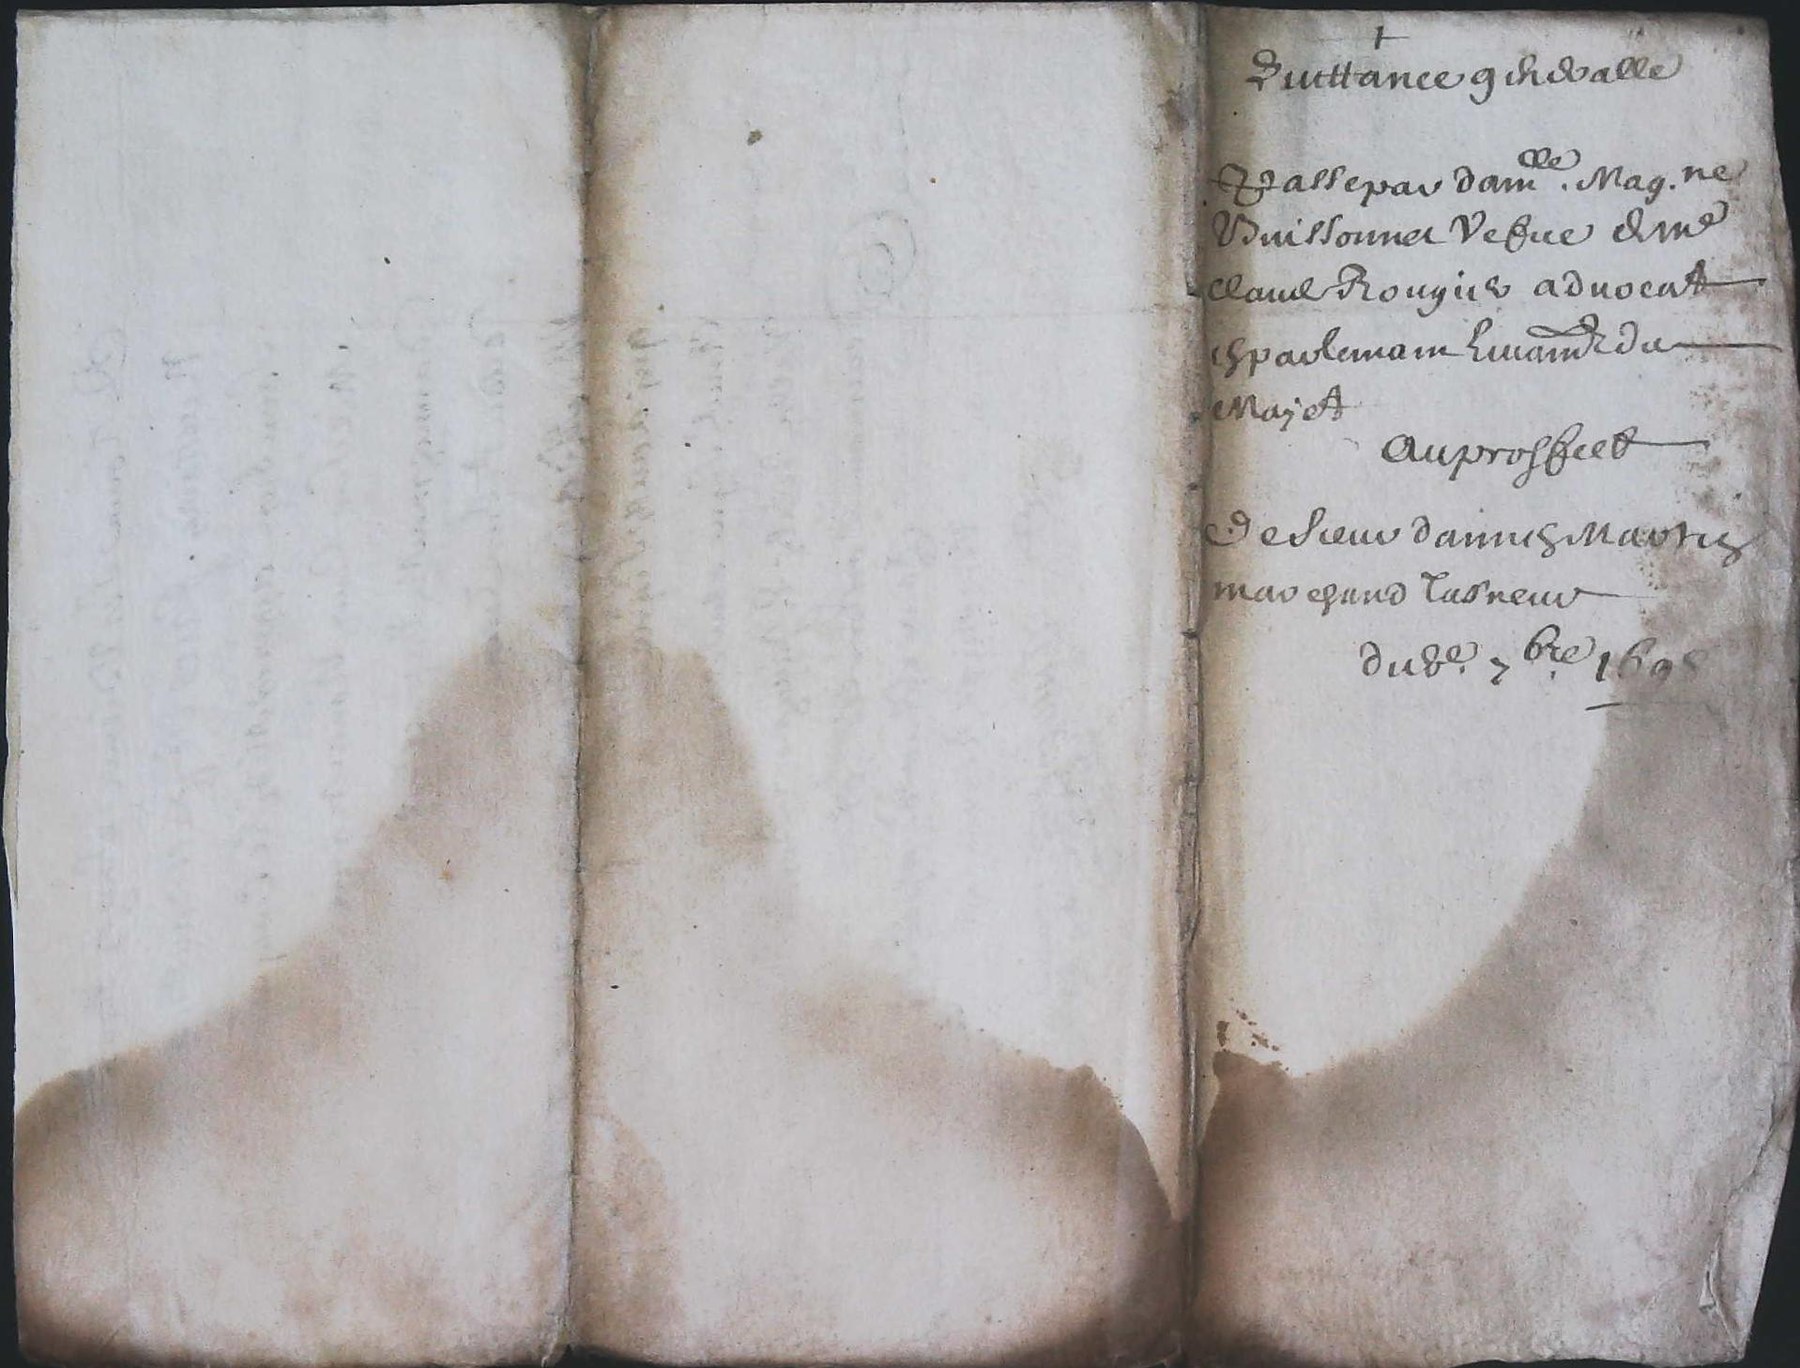 Quittance generalle
Passe par dam.lle Mag.ne
Buissonnet Vefue de me
Claude Rougier aduocat
en parlemant du
Majet
Au proffict
De sieur Martin
marchand Tasneur
du 8e. 7bre. 169